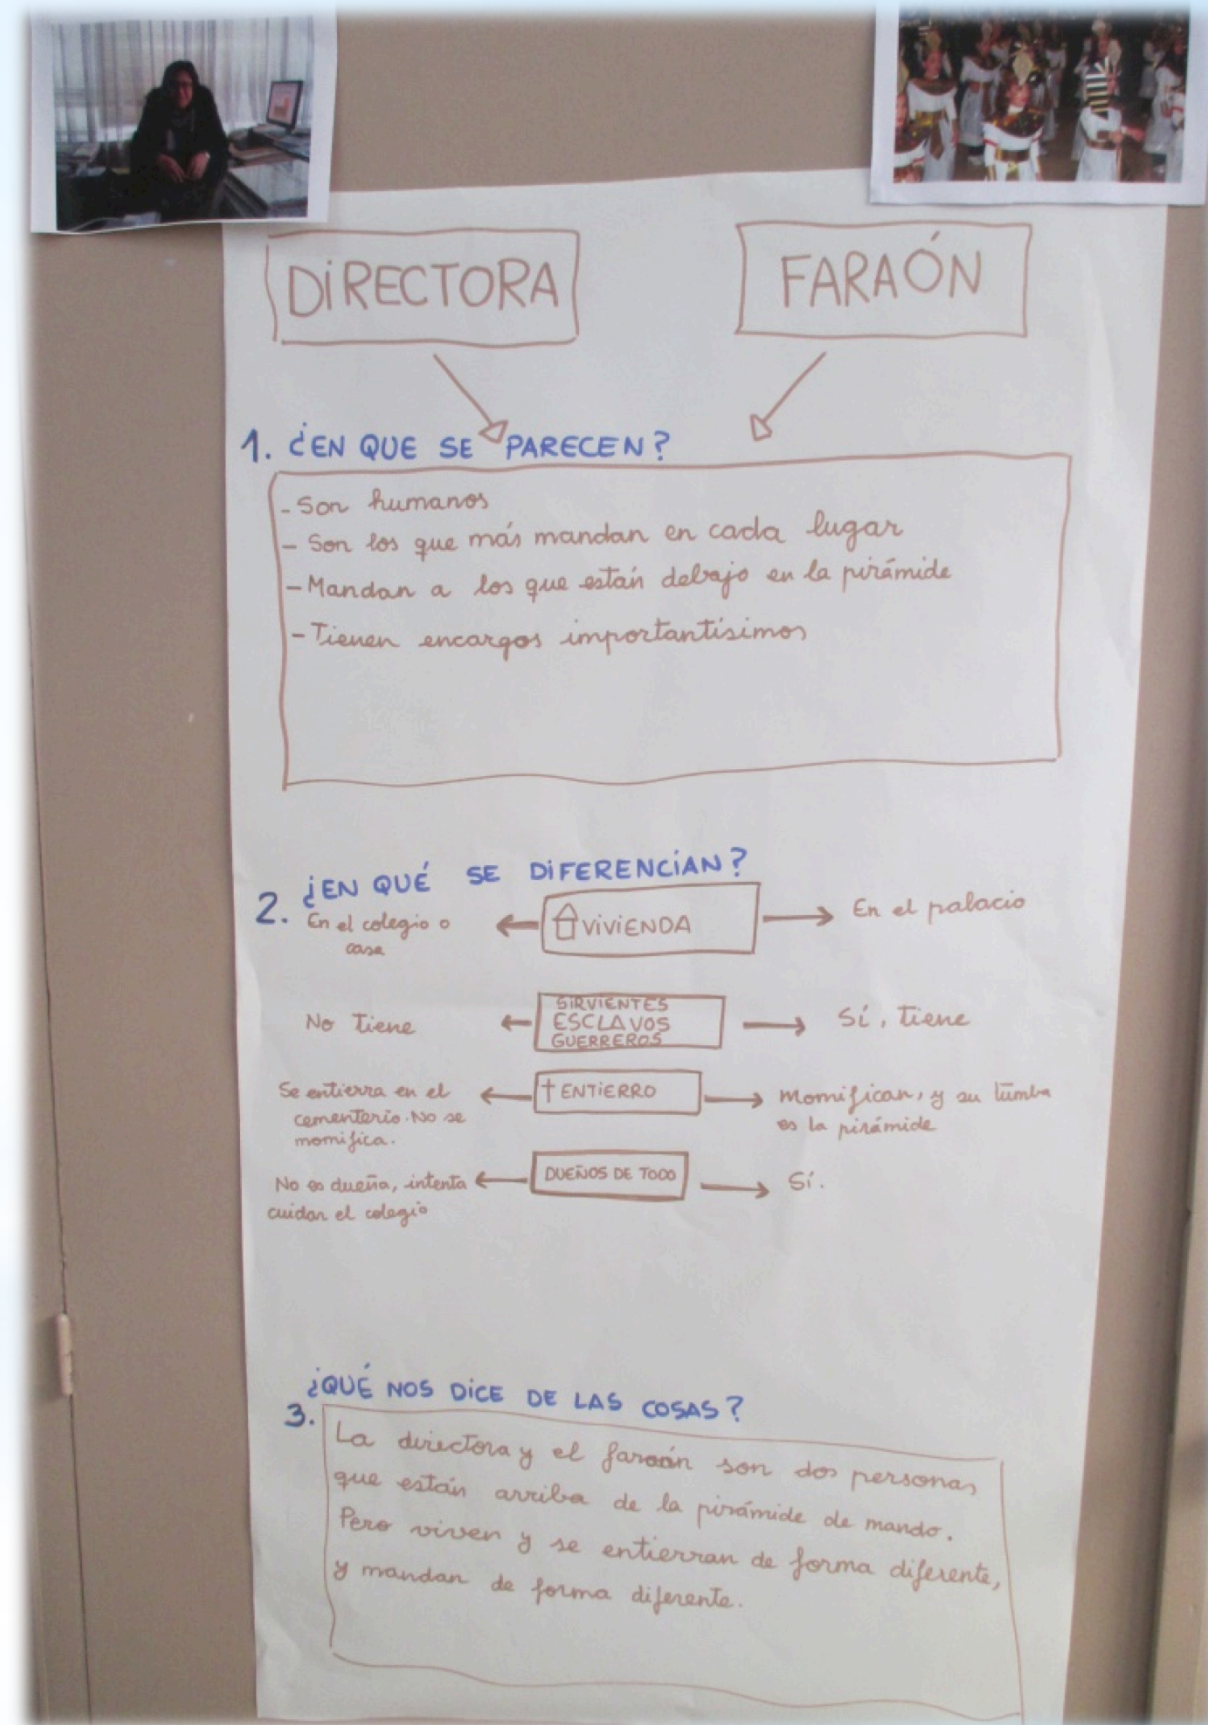 DIRECTORA
FARAÓN
1. ¿EN QUE SE PARECEN?
- Son humanos
- Son los que más mandan en cada lugar
- Mandan a los que están debajo en la pirámide
- Tienen encargos importantísimos
2. ¿EN QUÉ SE DIFERENCÍAN?
En el colegio o
casa
VIVIENDA
En el palacio
No tiene
SIRVIENTES
ESCLAVOS
GUERREROS
Sí, tiene
Se entierra en el
cementerio. No se
momifica.
† ENTIERRO
Momifican, y su tumba
es la pirámide
No es dueña, intenta
cuidar el colegio
DUEÑOS DE TODO
Sí.
3. ¿QUÉ NOS DICE DE LAS COSAS?
La directora y el faraón son dos personas
que están arriba de la pirámide de mando.
Pero viven y se entierran de forma diferente,
y mandan de forma diferente.